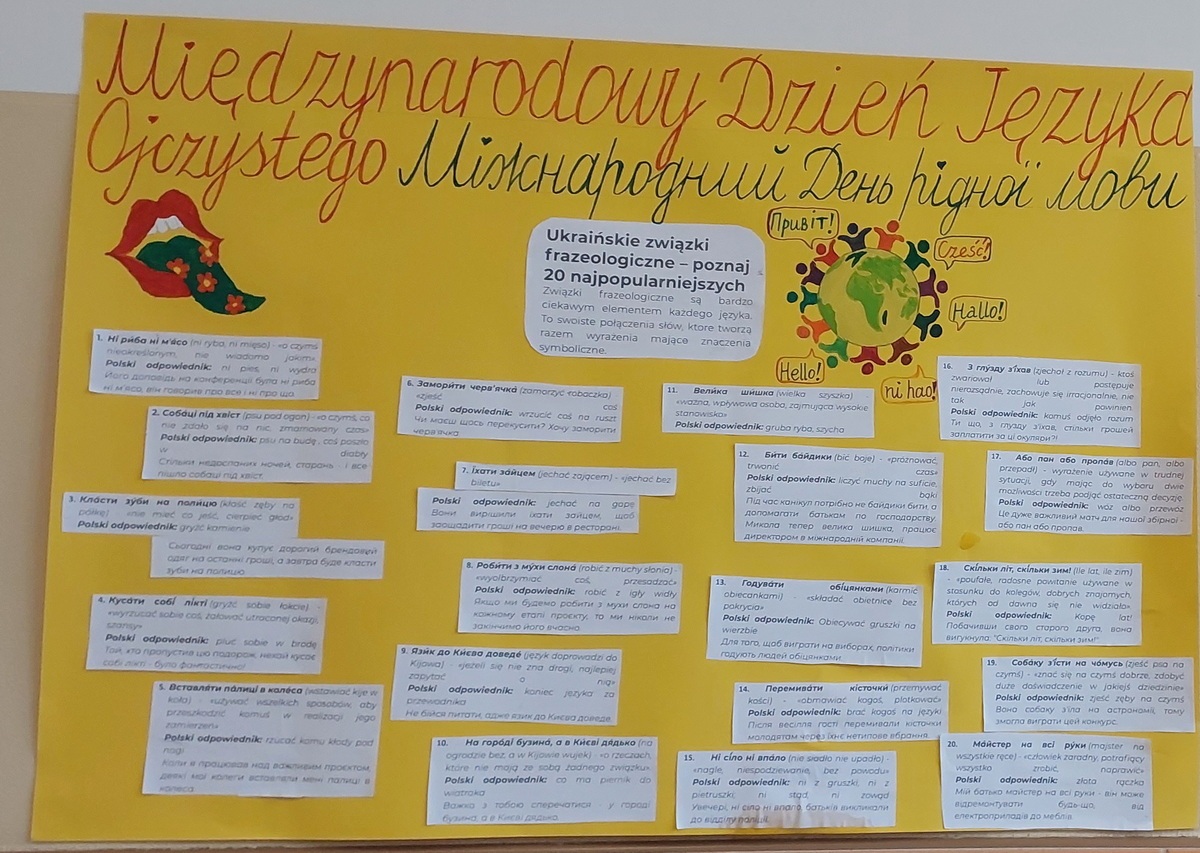 Międzynarodowy Dzień Języka
Ojczystego Міжнародний День рідної мови
Привіт!
Cześć!
Hallo!
ni hao!
Hello!
Ukraińskie związki
frazeologiczne – poznaj
20 najpopularniejszych
Związki frazeologiczne są bardzo
ciekawym elementem każdego języka.
To swoiste połączenia słów, które tworzą
razem wyrażenia mające znaczenia
symboliczne.
1. Ні риба ні м'ясо (ni ryba, ni mięso) - «o czymś
nieokreślonym, nie wiadomo jakim»
Polski odpowiednik: ni pies, ni wydra
Його доповідь на конференції була ні риба
ні м'ясо, він говорив про все і ні про що.
2. Собаці під хвіст (psu pod ogon) - «o czymś, co
nie zdało się na nic, zmarnowany czas»
Polski odpowiednik: psu na budę, coś poszło
w diabły
Стільки недоспаних ночей, старань - і все
пішло собаці під хвіст.
3. Класти зуби на полицю (kłaść zęby na
półkę) - «nie mieć co jeść, cierpieć głód»
Polski odpowiednik: gryźć kamienie
Сьогодні вона купує дорогий брендовий
одяг на останні гроші, а завтра буде класти
зуби на полицю.
4. Кусати собі лікті (gryźć sobie łokcie) -
«wyrzucać sobie coś, żałować utraconej okazji,
szansy»
Polski odpowiednik: pluć sobie w brodę
Той, хто пропустив цю подорож, нехай кусає
собі лікті - було фантастично!
5. Вставляти палиці в колеса (wstawiać kije w
koła) - «używać wszelkich sposobów, aby
przeszkodzić komuś w realizacji jego
zamierzeń»
Polski odpowiednik: rzucać komu kłody pod
nogi
Коли я працював над важливим проєктом,
деякі мої колеги вставляли мені палиці в
колеса.
6. Заморити черв'ячка (zamorzyć robaczka) -
«zjeść coś»
Polski odpowiednik: wrzucić coś na ruszt
Чи маєш щось перекусити? Хочу заморити
черв'ячка
7. Їхати зайцем (jechać zającem) - «jechać bez
biletu»
Polski odpowiednik: jechać na gapę
Вони вирішили їхати зайцем, щоб
заощадити гроші на вечерю в ресторані.
8. Робити з мухи слона (robić z muchy słonia) -
«wyolbrzymiać coś, przesadzać»
Polski odpowiednik: robić z igły widły
Якщо ми будемо робити з мухи слона на
кожному етапі проєкту, то ми ніколи не
закінчимо його вчасно.
9. Язик до Києва доведе (język doprowadzi do
Kijowa) - «jeżeli się nie zna drogi, najlepiej
zapytać o nią»
Polski odpowiednik: koniec języka za
przewodnika
Не бійся питати, адже язик до Києва доведе.
10. На городі бузина, а в Києві дядько (na
ogrodzie bez, a w Kijowie wujek) - «o rzeczach,
które nie mają ze sobą żadnego związku»
Polski odpowiednik: co ma piernik do
wiatraka
Важко з тобою сперечатися - у городі
бузина, а в Києві дядько.
11. Велика шишка (wielka szyszka) -
«ważna, wpływowa osoba, zajmująca wysokie
stanowisko»
Polski odpowiednik: gruba ryba, szycha
12. Бити байдики (bić boje) - «próżnować,
trwonić czas»
Polski odpowiednik: liczyć muchy na suficie,
zbijać bąki
Під час канікул потрібно не байдики бити, а
допомагати батькам по господарству.
Микола тепер велика шишка, працює
директором в міжнародній компанії.
13. Годувати обіцянками (karmić
obiecankami) - «składać obietnice bez
pokrycia»
Polski odpowiednik: Obiecywać gruszki na
wierzbie
Для того, щоб виграти на виборах, політики
годують людей обіцянками.
14. Перемивати кісточки (przemywać
kości) - «obmawiać kogoś, plotkować»
Polski odpowiednik: brać kogoś na języki
Після весілля гості перемивали кісточки
молодятам через їхнє нетипове вбрання.
15. Ні сіло ні впало (nie siadło nie upadło) -
«nagle, niespodziewanie, bez powodu»
Polski odpowiednik: ni z gruszki, ni z
pietruszki, ni stąd, ni zowąd
Увечері, ні сіло ні впало, батьків викликали
до відділу поліції.
16. З глузду з'їхав (zjechał z rozumu) - ktoś
zwariował lub postępuje
nierozsądnie, zachowuje się irracjonalnie, nie
tak jak powinien.
Polski odpowiednik: komuś odjęło rozum
Ти що, з глузду з'їхав, стільки грошей
заплатити за ці окуляри?!
17. Або пан або пропав (albo pan, albo
przepadł) - wyrażenie używane w trudnej
sytuacji, gdy mając do wyboru dwie
możliwości trzeba podjąć ostateczną decyzję.
Polski odpowiednik: wóz albo przewóz
Це дуже важливий матч для нашої збірної -
або пан або пропав.
18. Скільки літ, скільки зим! (ile lat, ile zim)
- «poufałe, radosne powitanie używane w
stosunku do kolegów, dobrych znajomych,
których od dawna się nie widziało».
Polski odpowiednik: Kopę lat!
Побачивши свого старого друга, вона
вигукнула: "Скільки літ, скільки зим!"
19. Собаку з'їсти на чомусь (zjeść psa na
czymś) - «znać się na czymś dobrze, zdobyć
duże doświadczenie w jakiejś dziedzinie»
Polski odpowiednik: zjeść zęby na czymś
Вона собаку з'їла на астрономії, тому
змогла виграти цей конкурс.
20. Майстер на всі руки (majster na
wszystkie ręce) - «człowiek zaradny, potrafiący
wszystko zrobić, naprawić»
Polski odpowiednik: złota rączka
Мій батько майстер на всі руки - він може
відремонтувати будь-що, від
електроприладів до меблів.